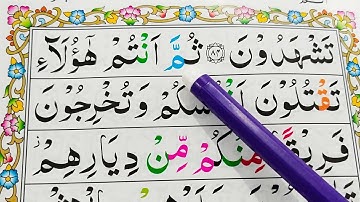 تَشْهَدُوْنَ ﴿۸۴﴾ ثُمَّ اَنْتُمْ هٰٓؤُلَآءِ
تَقْتُلُوْنَ اَنْفُسَكُمْ وَتُخْرِجُوْنَ
فَرِيْقًا مِّنْكُمْ مِّنْ دِيَارِهِمْ ز